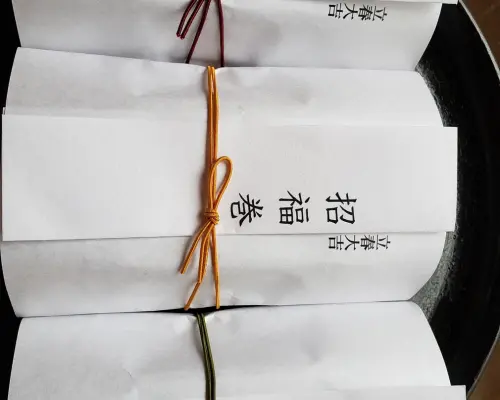 立春大吉
招福巻
立春大吉